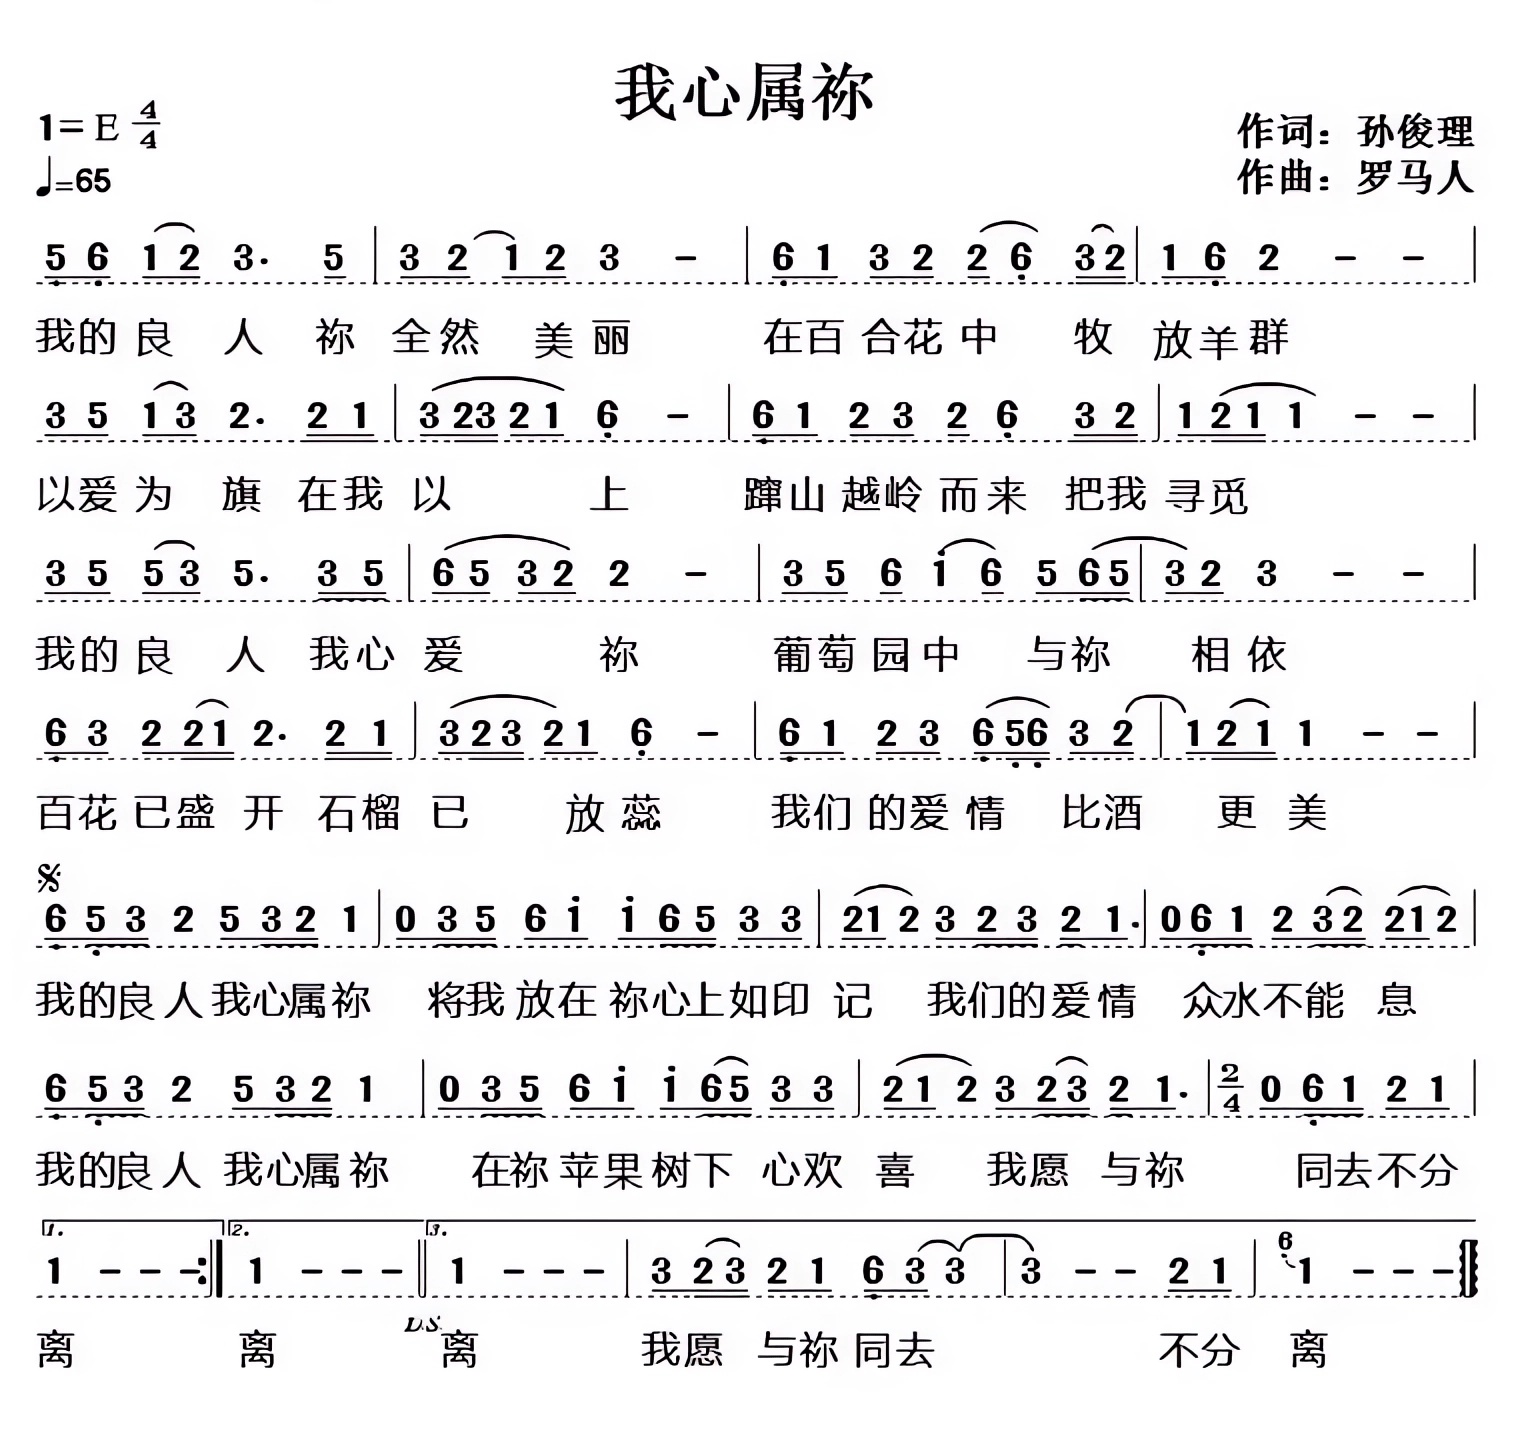 我心属祢
1= E 4/4
作词：孙俊理
♩=65
作曲：罗马人
5 6 1 2 3· 5 | 3 2 1 2 3 – | 6 1 3 2 2 6 3 2 | 1 6 2 – – |
我的良 人 祢 全然 美丽 在百合花中 牧 放羊群
3 5 1 3 2· 2 1 | 3 2 3 2 1 6 – | 6 1 2 3 2 6 3 2 | 1 2 1 1 – – |
以爱为 旗 在我 以 上 蹿山越岭而来 把我寻觅
3 5 5 3 5· 3 5 | 6 5 3 2 2 – | 3 5 6 i 6 5 6 5 | 3 2 3 – – |
我的良 人 我心 爱 祢 葡萄园中 与祢 相依
6 3 2 2 1 2· 2 1 | 3 2 3 2 1 6 – | 6 1 2 3 6 5 6 3 2 | 1 2 1 1 – – |
百花已盛 开 石榴 已 放蕊 我们的爱情 比酒 更 美
6 5 3 2 5 3 2 1 | 0 3 5 6 i i 6 5 3 3 | 2 1 2 3 2 3 2 1· | 0 6 1 2 3 2 2 1 2 |
我的良人我心属祢 将我放在祢心上如印 记 我们的爱情 众水不能 息
6 5 3 2 5 3 2 1 | 0 3 5 6 i i 6 5 3 3 | 2 1 2 3 2 3 2 1· | 2/4 0 6 1 2 1 |
我的良人 我心属祢 在祢苹果树下 心欢 喜 我愿 与祢 同去不分
1. 2. 3.
1 – – – :| 1 – – – || 1 – – – | 3 2 3 2 1 6 3 3 | 3 – – 2 1 | 6 1 – – – ||
D.S.
离 离 离 我愿 与祢同去 不分 离